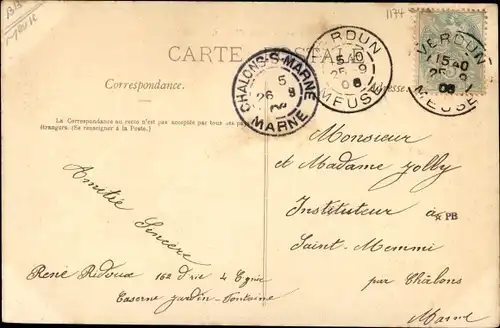 1174
CARTE POSTALE
VERDUN
15 40
25 - 9
08
MEUSE
VERDUN
15 40
25 - 9
08
MEUSE
CHALONS-S-MARNE
5
26 9
MARNE
Correspondance.
Adresse
La Correspondance au recto n'est pas acceptée par tous les pays
étrangers. (Se renseigner à la Poste.)
Monsieur
et Madame Jolly
Instituteur à
PB
Saint-Memmi
par Châlons
Marne
Amitié Sincère
René Ridoux 162 d'rie 4 Cgnie
Caserne Jardin-Fontaine